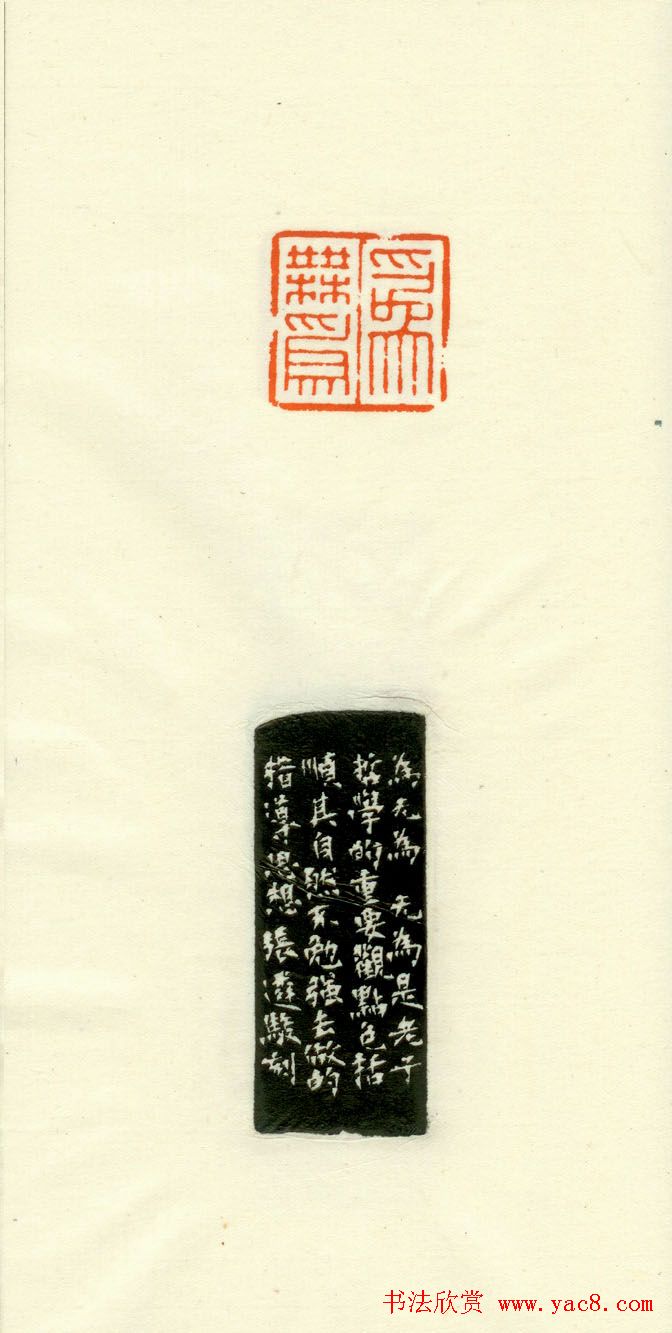 為
無為
為无為 无為是老子
哲學的重要觀點包括
順其自然不勉强去做的
指導思想張遴駿刻
书法欣赏 www.yac8.com